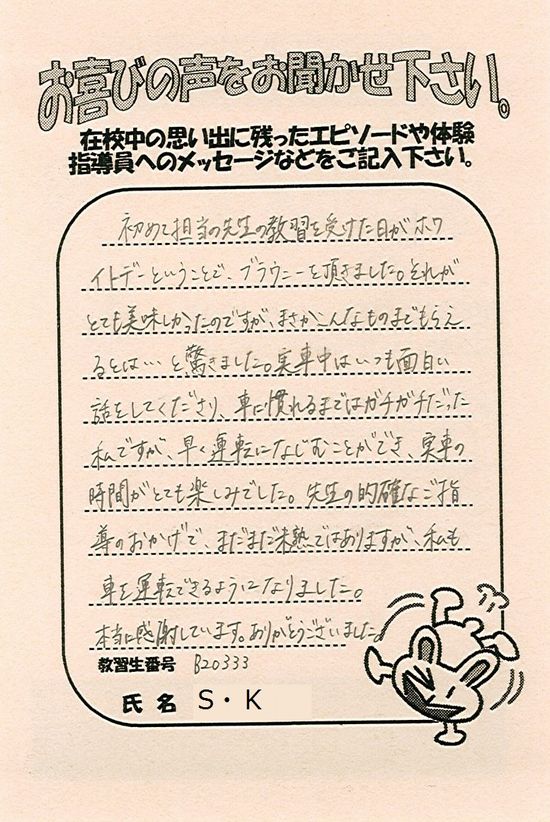 お喜びの声をお聞かせ下さい。
在校中の思い出に残ったエピソードや体験
指導員へのメッセージなどをご記入下さい。
初めて担当の先生の教習を受けた日がホワ
イトデーということで、ブラウニーを頂きました。それが
とても美味しかったのですが、まさかこんなものまでもらえ
るとは…と驚きました。実車中はいつも面白い
話をしてくださり、車に慣れるまではガチガチだった
私ですが、早く運転になじむことができ、実車の
時間がとても楽しみでした。先生の的確なご指
導のおかげで、まだまだ未熟ではありますが、私も
車を運転できるようになりました。
本当に感謝しています。ありがとうございました。
教習生番号 B20333
氏名 S・K